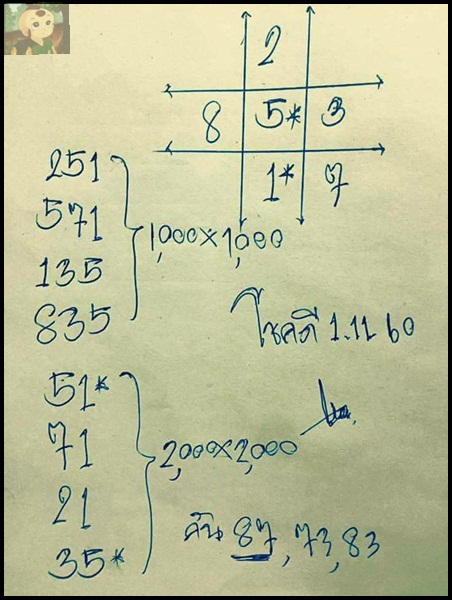 2
8 5* 3
1* 7
251
571
135
835
1,000×1,000
โชคดี 1.11.60
51*
71
21
35*
2,000×2,000
คัน 87, 73, 83